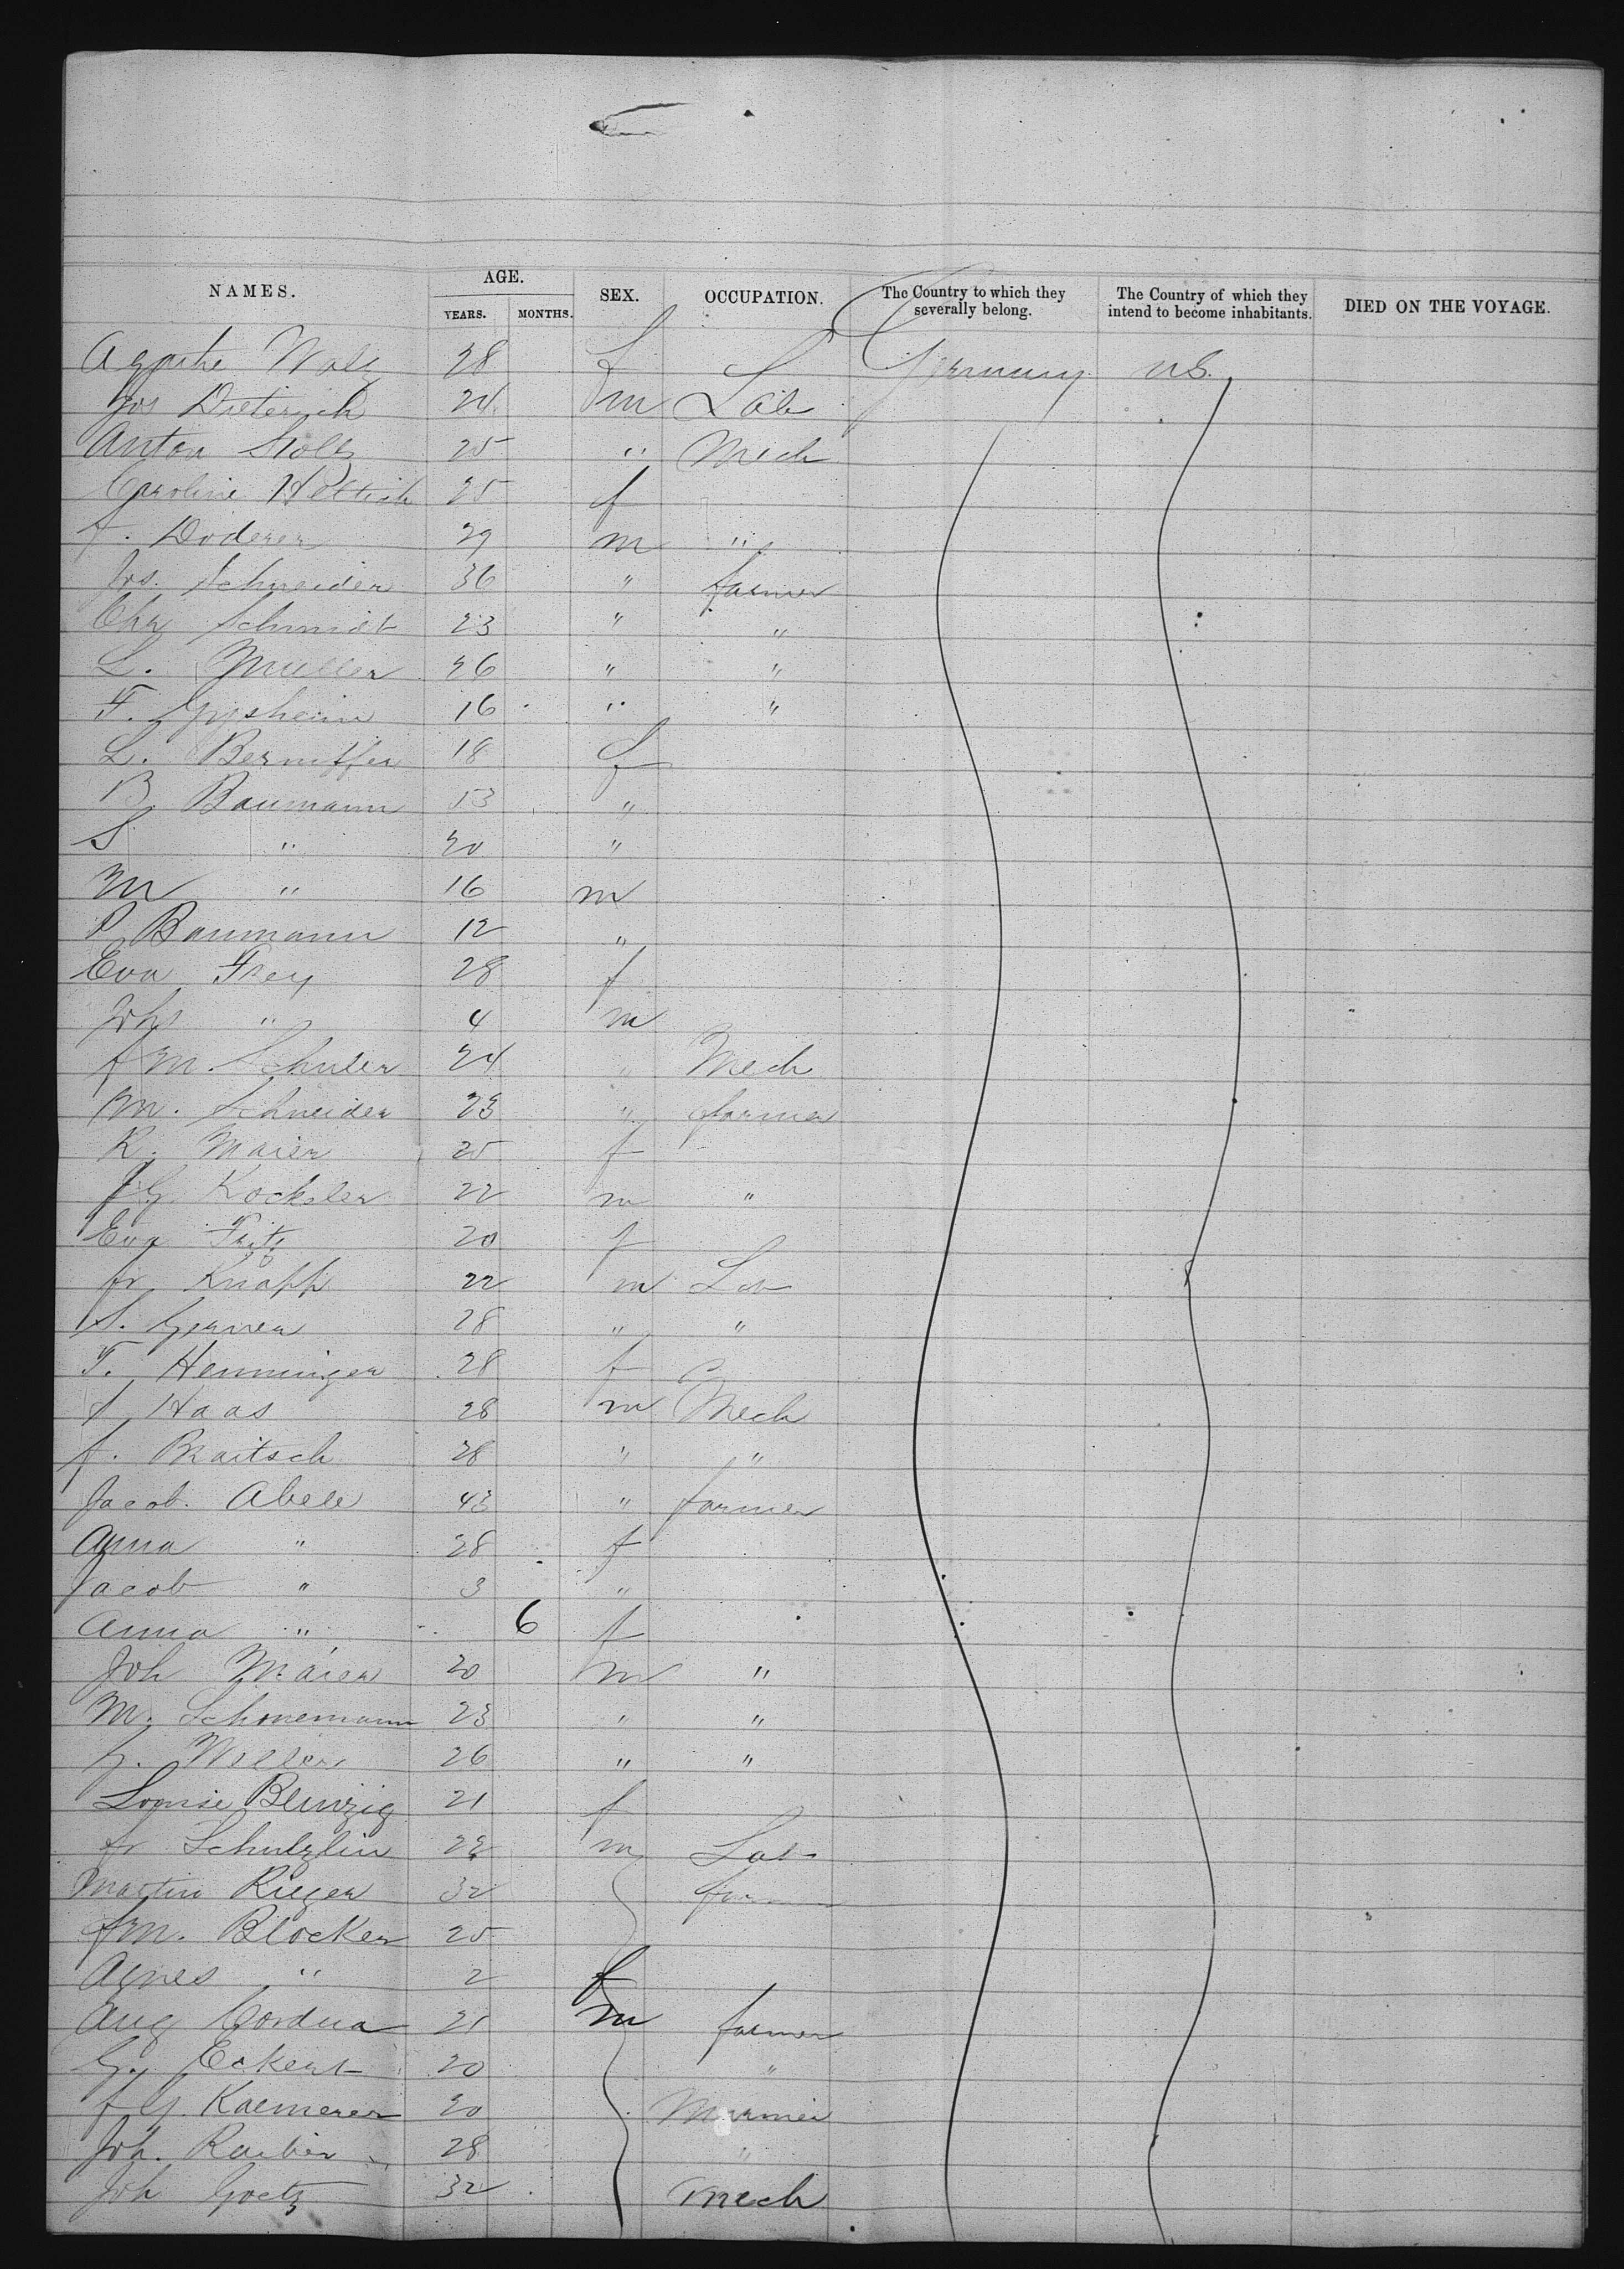 NAMES. AGE. YEARS. MONTHS. SEX. OCCUPATION. The Country to which they severally belong. The Country of which they intend to become inhabitants. DIED ON THE VOYAGE.
Agathe Walz 28 f Germany U.S.
Jos Dieterich 24 m Lab
Anton Stolz 25 " Mech
Caroline Hettich 25 f
F. Doderer 29 m "
Jos. Schneider 36 " farmer
Chr Schmidt 23 " "
L. Mueller 26 " "
F. 16 " "
L. 18 f
B. Baumann 13 "
S " 20 "
M " 16 m
P Baumann 12 "
Eva Frey 28 f
Johs " 4 m
J M. Schuler 24 " Mech
M. Schneider 23 " farmer
R. Maier 25 f
J G. Kocksler 22 m "
Eva Fritz 20 f
Fr Knapp 22 m Lab
S. Gerner 28 " "
T. Henninger 28 f
J Haas 28 m Mech
J. Braitsch 28 " "
Jacob Abele 43 " farmer
Anna " 28 f
Jacob " 3 "
Anna " 6 f
Joh Maier 20 m "
M. Schonemann 23 " "
G. 26 " "
Louise Blinzig 21 f
Fr Schulzlin 22 m Lab
Martin Rieger 32 far
J M. Blocker 25
Agnes " 2 f
Aug Cordua 21 m farmer
G. Eckert 20 "
J G. Kaemerer 20
Joh. 28 "
Joh Goetz 32 Mech